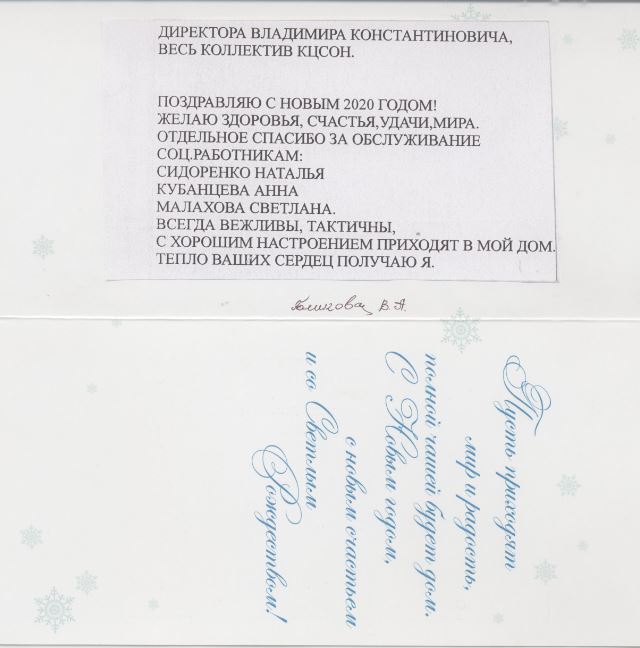 ДИРЕКТОРА ВЛАДИМИРА КОНСТАНТИНОВИЧА,
ВЕСЬ КОЛЛЕКТИВ КЦСОН.
ПОЗДРАВЛЯЮ С НОВЫМ 2020 ГОДОМ!
ЖЕЛАЮ ЗДОРОВЬЯ, СЧАСТЬЯ,УДАЧИ,МИРА.
ОТДЕЛЬНОЕ СПАСИБО ЗА ОБСЛУЖИВАНИЕ
СОЦ.РАБОТНИКАМ:
СИДОРЕНКО НАТАЛЬЯ
КУБАНЦЕВА АННА
МАЛАХОВА СВЕТЛАНА.
ВСЕГДА ВЕЖЛИВЫ, ТАКТИЧНЫ,
С ХОРОШИМ НАСТРОЕНИЕМ ПРИХОДЯТ В МОЙ ДОМ.
ТЕПЛО ВАШИХ СЕРДЕЦ ПОЛУЧАЮ Я.
В.А.
Пусть приходят
мир и радость,
полной чашей будет дом.
С Новым годом,
с новым счастьем
и со Светлым
Рождеством!